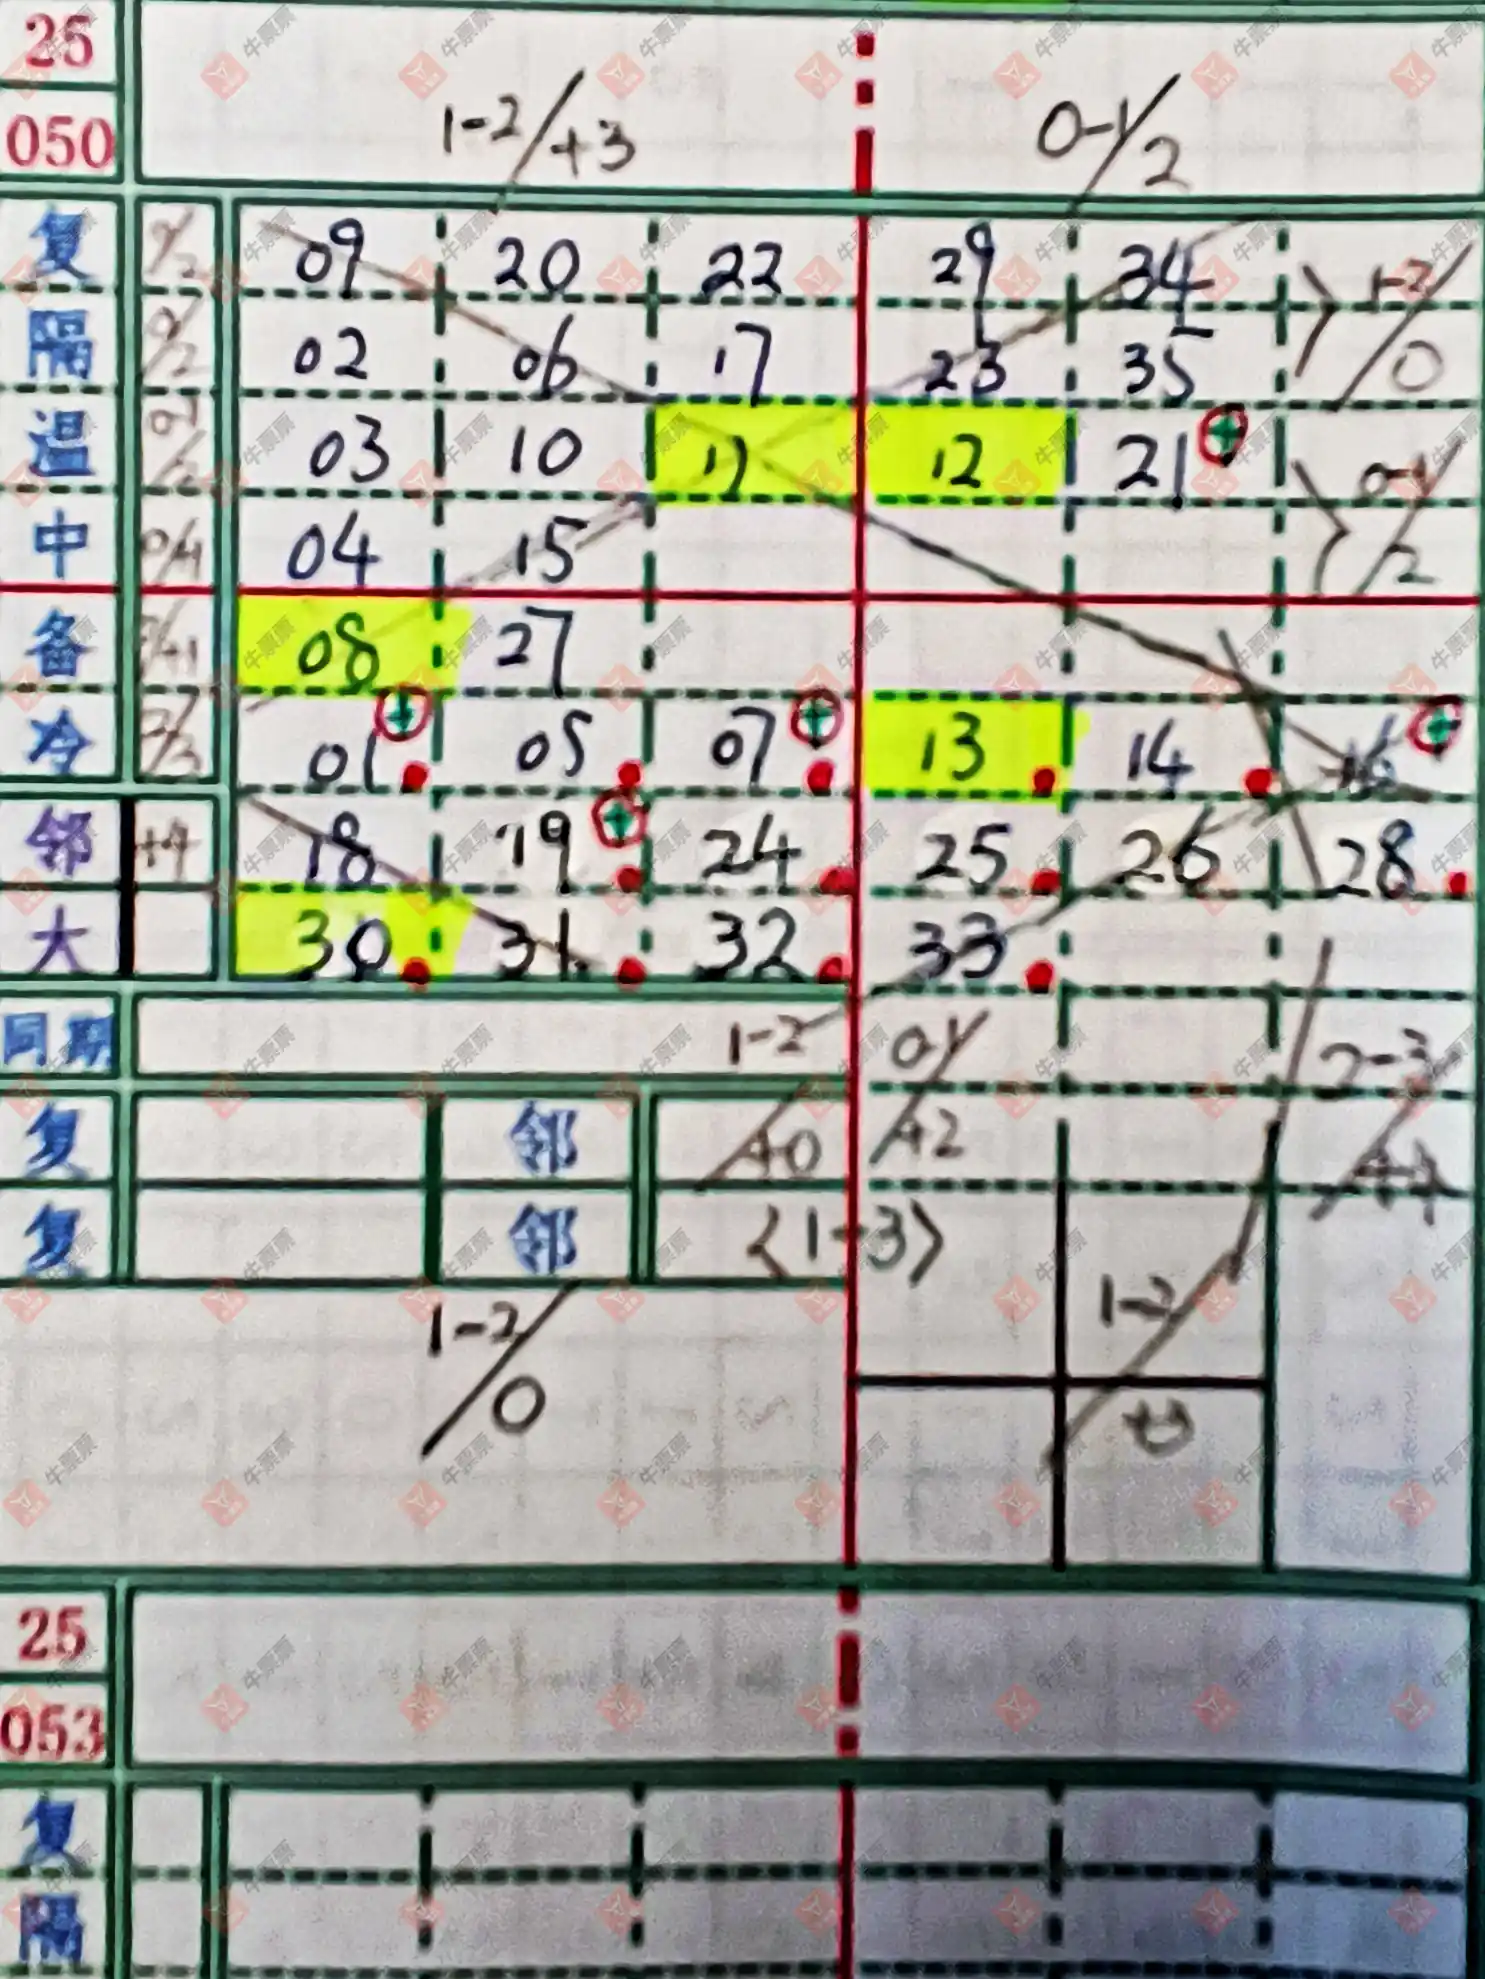 25
050 1-2/+3 0-1/2
复 0/2 09 20 22 29 34 1-2/0
隔 0/2 02 06 17 23 35
温 0-1/2 03 10 11 12 21 0-1/2
中 04 15
备 08 27
冷 01 05 07 13 14 16
邻 +4 18 19 24 25 26 28
大 30 31 32 33
同期 1-2 0-1 2-3
复 邻 +0 +2
复 邻 <1-3>
1-2/0 1-2
25
053
复
隔
牛票票